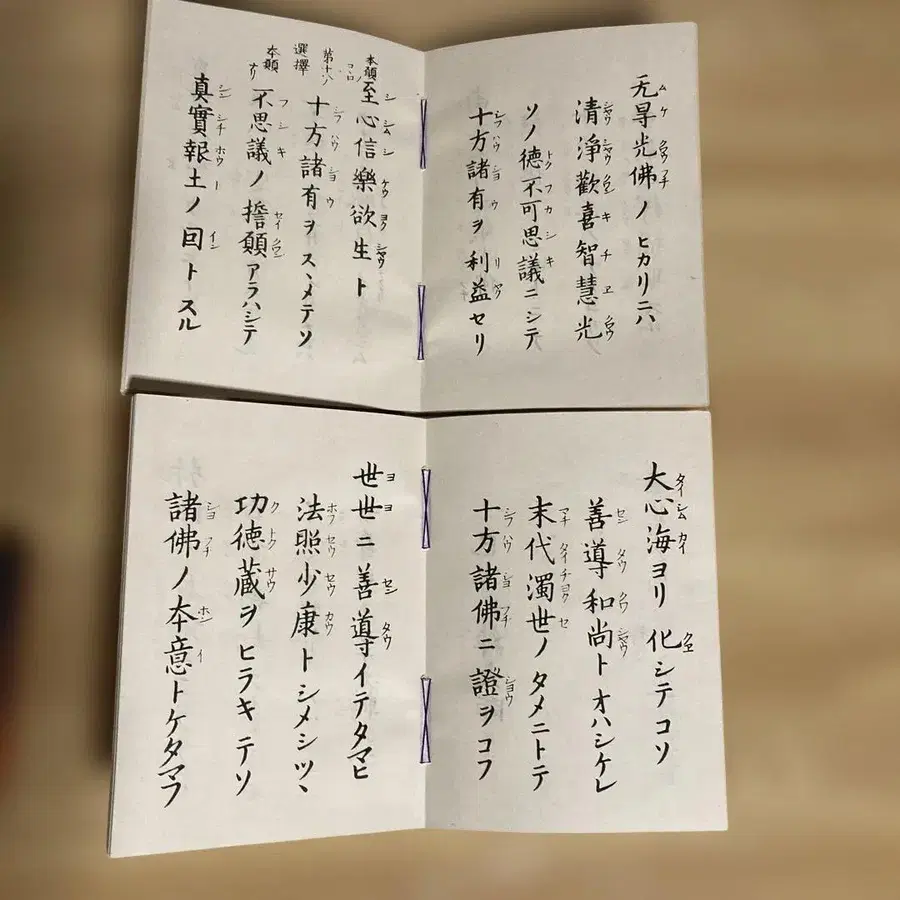 无㝵光佛ノヒカリニハ
清淨歡喜智慧光
ソノ徳不可思議ニシテ
十方諸有ヲ利益セリ
至心信樂欲生ト
十方諸有ヲスヽメテソ
不思議ノ誓願アラハシテ
真實報土ノ因トスル
本願
第十八ノコヽロ
選擇
本願ナリ
大心海ヨリ化シテコソ
善導和尚トオハシケレ
末代濁世ノタメニトテ
十方諸佛ニ證ヲコフ
世世ニ善導イテタマヒ
法照少康トシメシツヽ
功徳蔵ヲヒラキテソ
諸佛ノ本意トケタマフ